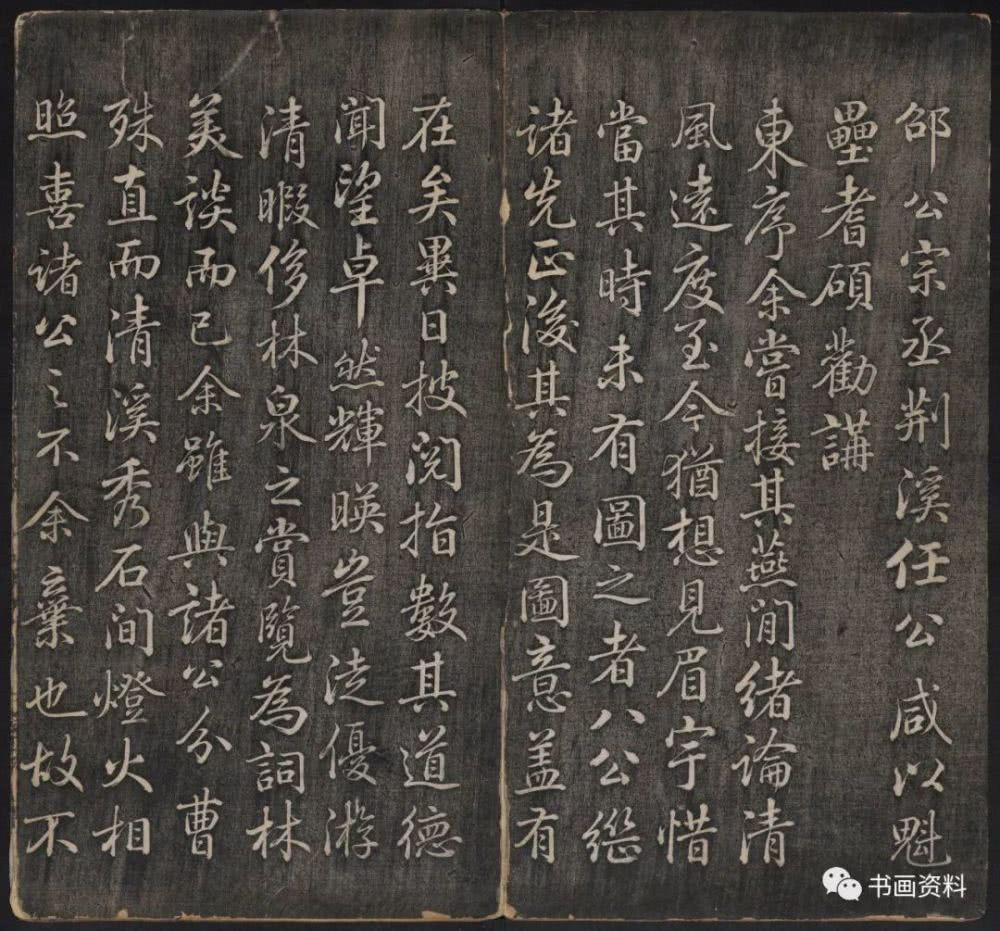 邵公宗丞荆溪任公咸以魁
壘耆碩勸講
東序余嘗接其燕間緒論清
風遠度至今猶想見眉宇惜
當其時未有圖之者八公繼
諸先正後其為是圖意盖有
在矣異日披閱指數其道德
聞望卓然輝暎豈徒優游
清暇侈林泉之賞覽為詞林
美談而已余雖與諸公分曹
殊直而清溪秀石間燈火相
照喜諸公之不余棄也故不
书画资料